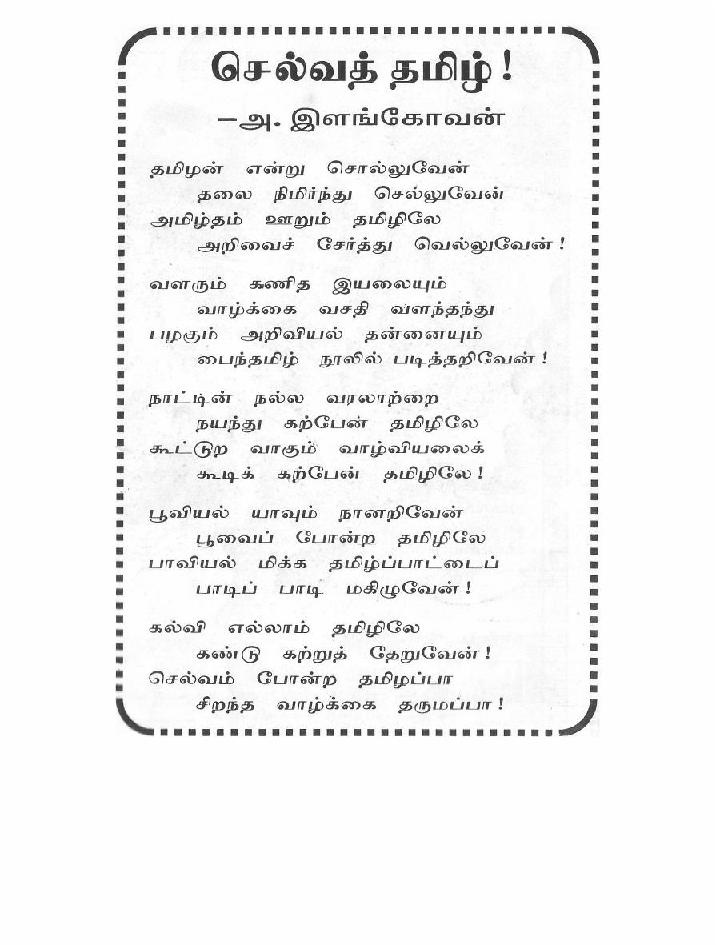 செல்வத் தமிழ் !
–அ. இளங்கோவன்
தமிழன் என்று சொல்லுவேன்
தலை நிமிர்ந்து செல்லுவேன்
அமிழ்தம் ஊறும் தமிழிலே
அறிவைச் சேர்த்து வெல்லுவேன் !
வளரும் கணித இயலையும்
வாழ்க்கை வசதி வளந்தந்து
பழகும் அறிவியல் தன்னையும்
பைந்தமிழ் நூலில் படித்தறிவேன் !
நாட்டின் நல்ல வரலாற்றை
நயந்து கற்பேன் தமிழிலே
கூட்டுற வாகும் வாழ்வியலைக்
கூடிக் கற்பேன் தமிழிலே !
பூவியல் யாவும் நானறிவேன்
பூவைப் போன்ற தமிழிலே
பாவியல் மிக்க தமிழ்ப்பாட்டைப்
பாடிப் பாடி மகிழுவேன் !
கல்வி எல்லாம் தமிழிலே
கண்டு கற்றுத் தேறுவேன் !
செல்வம் போன்ற தமிழப்பா
சிறந்த வாழ்க்கை தருமப்பா !